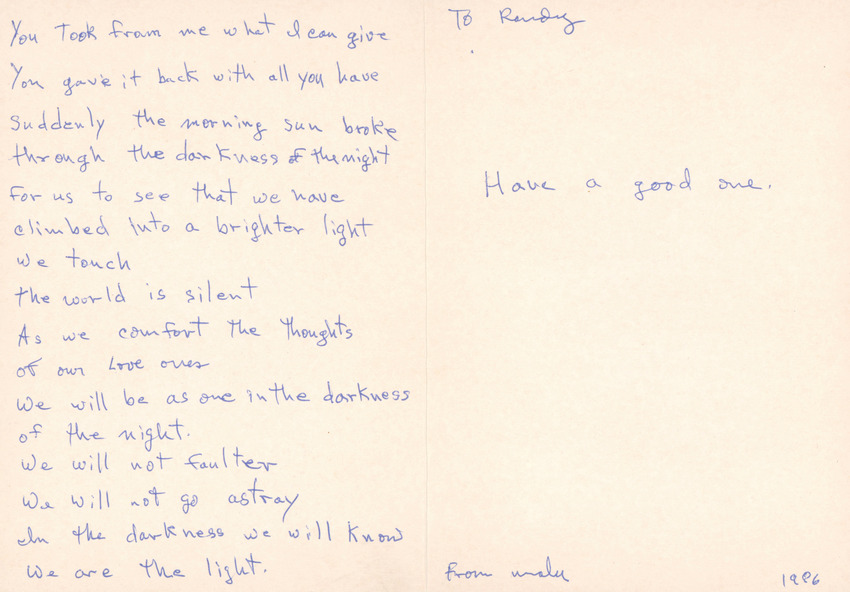 You Took from me what I can give
You gave it back with all you have
Suddenly the morning sun broke
through the darkness of the night
For us to see that we have
climbed into a brighter light
we touch
the world is silent
As we comfort the thoughts
of our Love ones
We will be as one in the darkness
of the night.
We will not faulter
We will not go astray
In the darkness we will know
We are the light.
To Randy
Have a good one.
From
1986